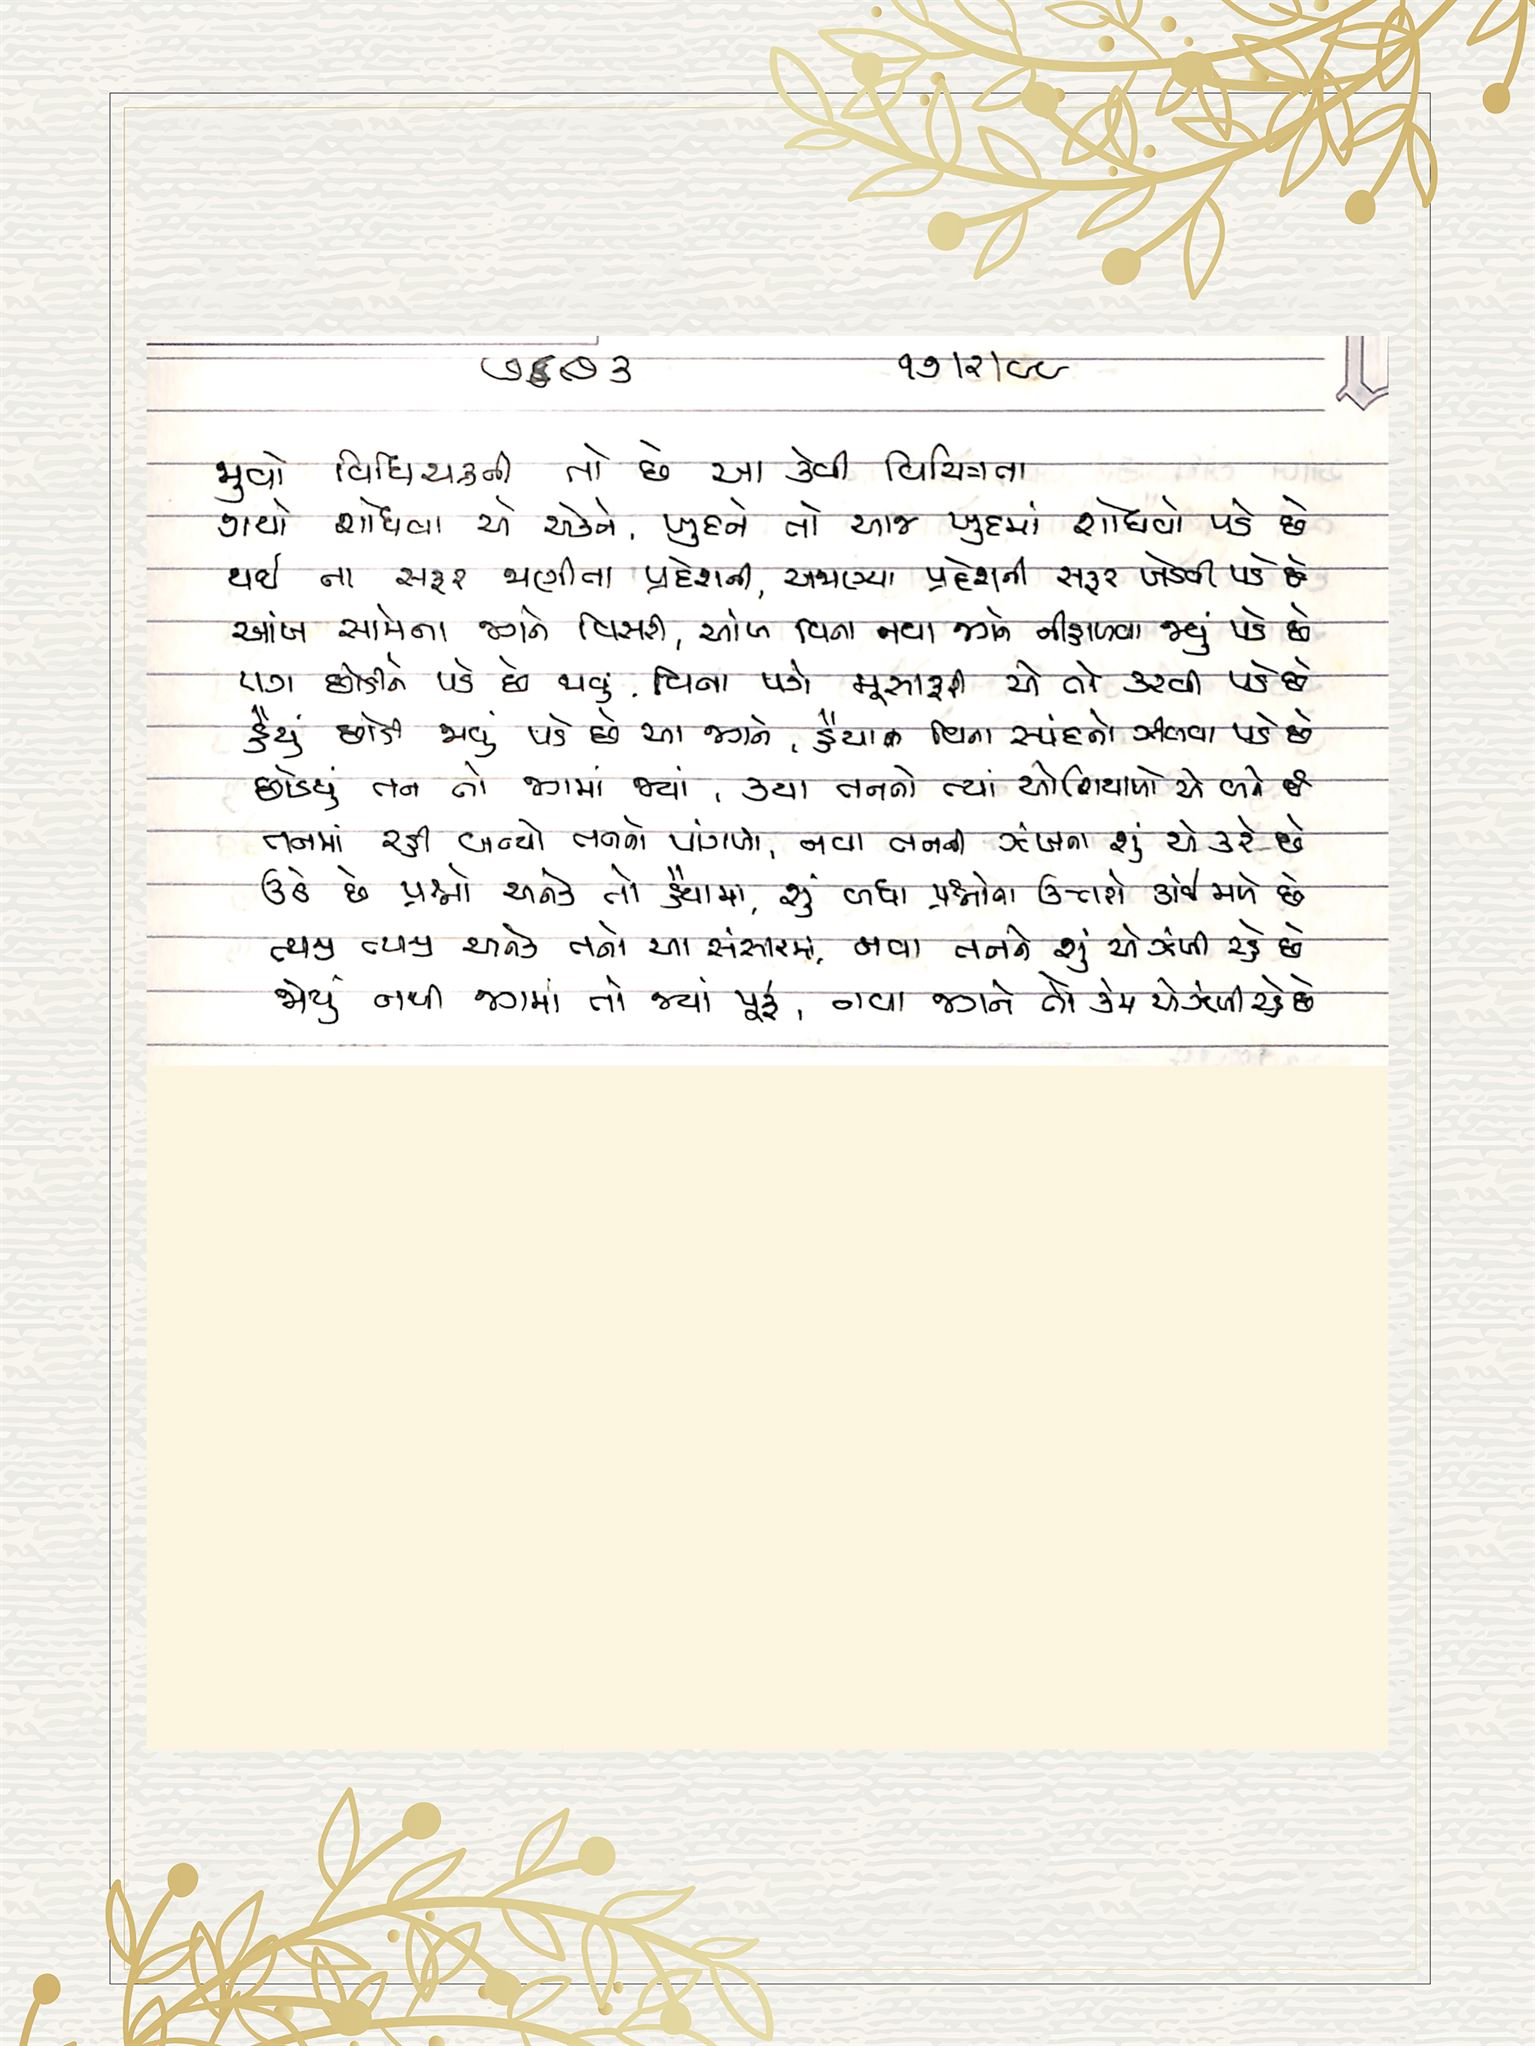 ૭૬૭૩ ૧૭/૨/૯૯
જુવો વિધિચક્રની તો છે આ કેવી વિચિત્રતા
ગયો શોધવા એ એકને, ખુદને તો આજ ખુદમાં શોધવો પડે છે
થઈ ના સફર જાણીતા પ્રદેશની, અજાણ્યા પ્રદેશની સફર ખેડેવી પડે છે
આંખ સામેના જગને વિસરી, આંખ વિના નવા જગને નીહાળવા જવું પડે છે
પગ છોડીને પડે છે જાવું, વિના પગે મુસાફરી એ તો કરવી પડે છે
હૈયું છોડી જાવું પડે છે આ જગને, હૈયા વિના સ્પંદનો ઝીલવા પડે છે
છોડયું તન તો જગમાં જ્યાં, કયા તનનો ત્યાં ઓશિયાળો એ બને છે
તનમાં રહી બન્યો તનનો પાંગળો, નવા તનની ઝંખના શું એ કરે છે
ઉઠે છે પ્રશ્નો અનેક તો હૈયામાં, શું બધા પ્રશ્નોના ઉત્તરો કાંઈ મળે છે
ત્યજી ત્યજી અનેક તનો આ સંસારમાં, નવા તનને શું એ ઝંખી રહે છે
જોયું નથી જગમાં તો જ્યાં પૂરું, નવા જગને તો કેમ એ ઝંખી રહે છે